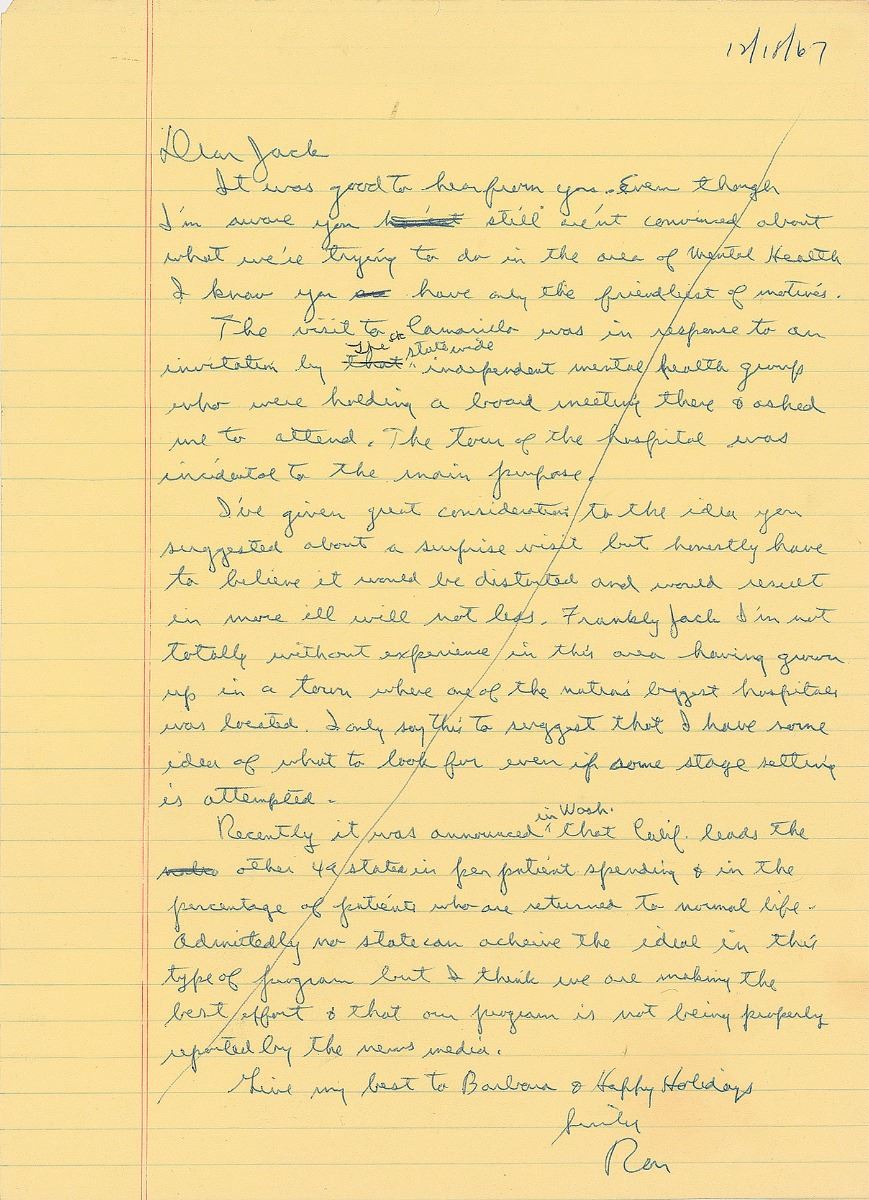 12/18/67
Dear Jack
It was good to hear from you. Even though
I'm aware you still are'nt convinced about
what we're trying to do in the area of Mental Health
I know you have only the friendliest of motives.
The visit to Camarillo was in response to an
invitation by the statewide independent mental health group
who were holding a board meeting there & asked
me to attend. The tour of the hospital was
incidental to the main purpose.
I've given great consideration to the idea you
suggested about a surprise visit but honestly have
to believe it would be distorted and would result
in more ill will not less. Frankly Jack I'm not
totally without experience in this area having grown
up in a town where one of the nation's biggest hospitals
was located. I only say this to suggest that I have some
idea of what to look for even if some stage setting
is attempted.
Recently it was announced in Wash. that Calif. leads the
other 49 states in per patient spending & in the
percentage of patients who are returned to normal life.
Admittedly no state can acheive the ideal in this
type of program but I think we are making the
best effort & that our program is not being properly
reported by the news media.
Give my best to Barbara & Happy Holidays
Ron